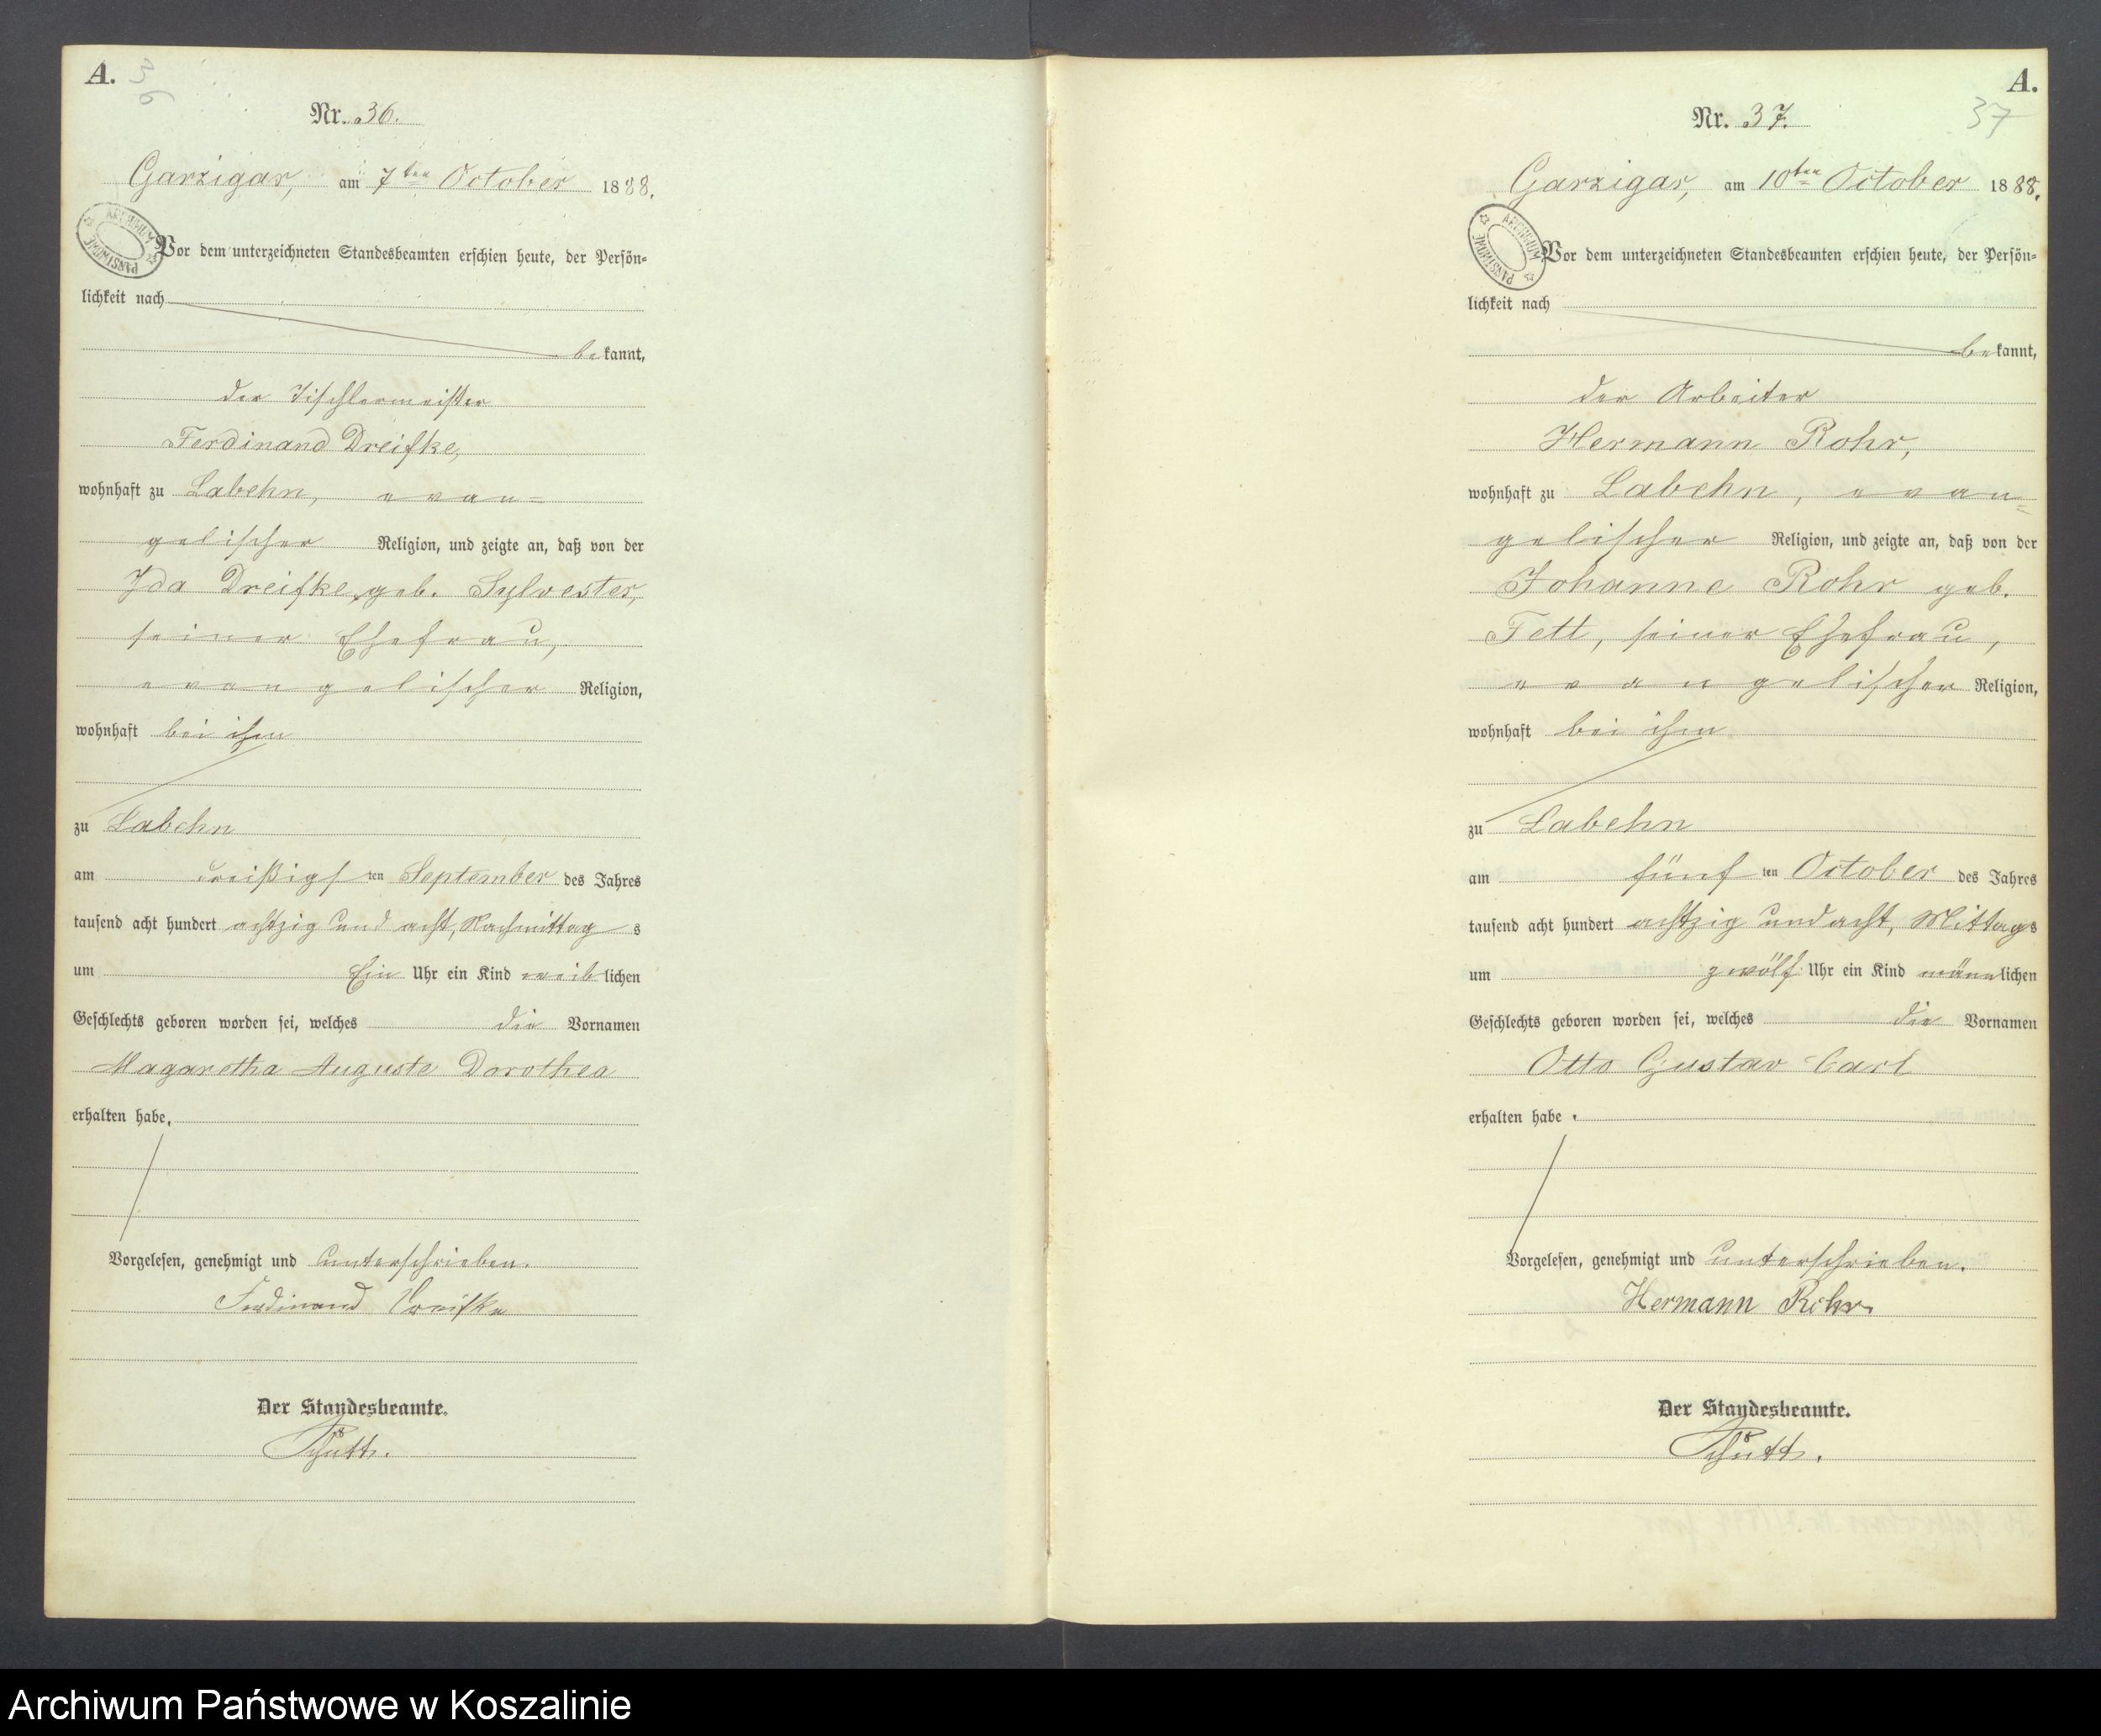 A.
36
Nr. 36.
Garzigar, am 7ten October 1888.
ARCHIWUM PAŃSTWOWE
Vor dem unterzeichneten Standesbeamten erschien heute, der Persön=
lichkeit nach
bekannt,
der Tischlermeister
Ferdinand Dreifke,
wohnhaft zu Labehn, evan=
gelischer Religion, und zeigte an, daß von der
Ida Dreifke, geb. Sylvester,
seiner Ehefrau,
evangelischer Religion,
wohnhaft bei ihm
zu Labehn
am dreißigsten September des Jahres
tausend acht hundert achtzig und acht, Nachmittags
um Ein Uhr ein Kind weiblichen
Geschlechts geboren worden sei, welches die Vornamen
Magaretha Auguste Dorothea
erhalten habe.
Vorgelesen, genehmigt und unterschrieben.
Ferdinand Dreifke
Der Standesbeamte.
A.
37
Nr. 37.
Garzigar, am 10ten October 1888.
ARCHIWUM PAŃSTWOWE
Vor dem unterzeichneten Standesbeamten erschien heute, der Persön=
lichkeit nach
bekannt,
der Arbeiter
Hermann Rohr,
wohnhaft zu Labehn, evan=
gelischer Religion, und zeigte an, daß von der
Johanne Rohr geb.
Tett, seiner Ehefrau,
evangelischer Religion,
wohnhaft bei ihm
zu Labehn
am fünften October des Jahres
tausend acht hundert achtzig und acht, Mittags
um zwölf Uhr ein Kind männlichen
Geschlechts geboren worden sei, welches die Vornamen
Otto Gustav Carl
erhalten habe.
Vorgelesen, genehmigt und unterschrieben.
Hermann Rohr.
Der Standesbeamte.
Archiwum Państwowe w Koszalinie